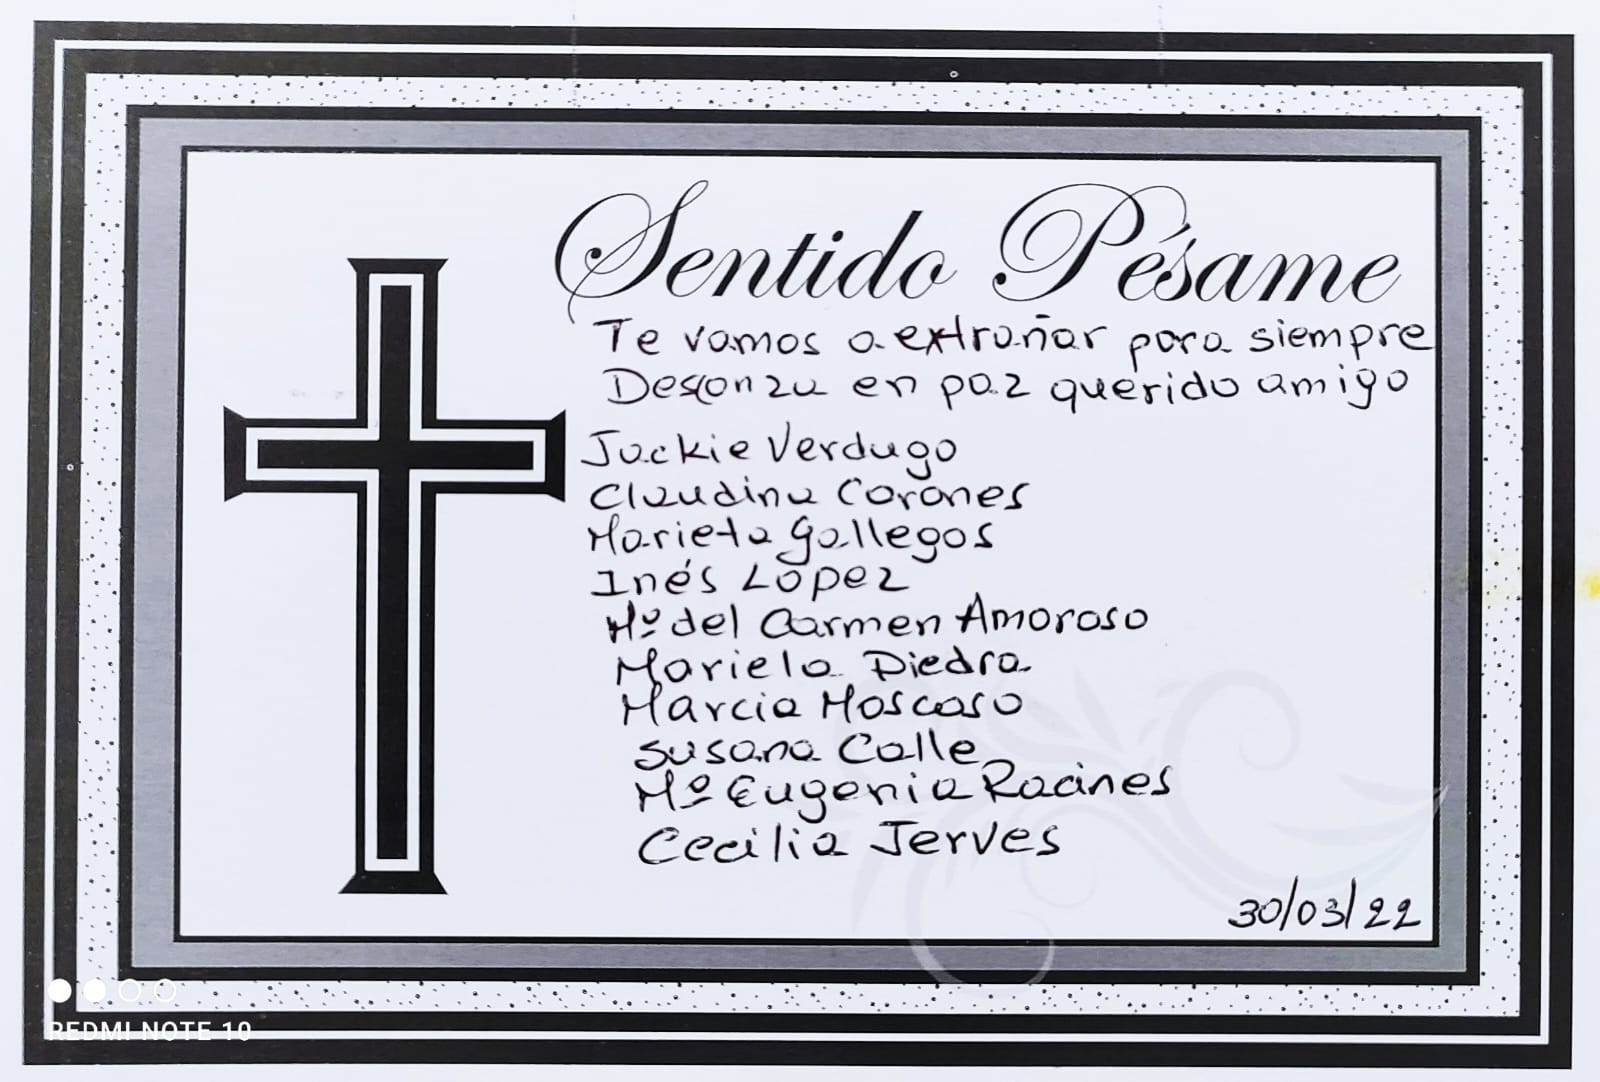 Sentido Pésame
Te vamos a extrañar para siempre
Descanza en paz querido amigo
Jackie Verdugo
Claudina Corones
Marieta Gallegos
Inés López
Mª del Carmen Amoroso
Mariela Piedra
Marcia Moscoso
Susana Calle
Mª Eugenia Racines
Cecilia Jerves
30/03/22
REDMI NOTE 10